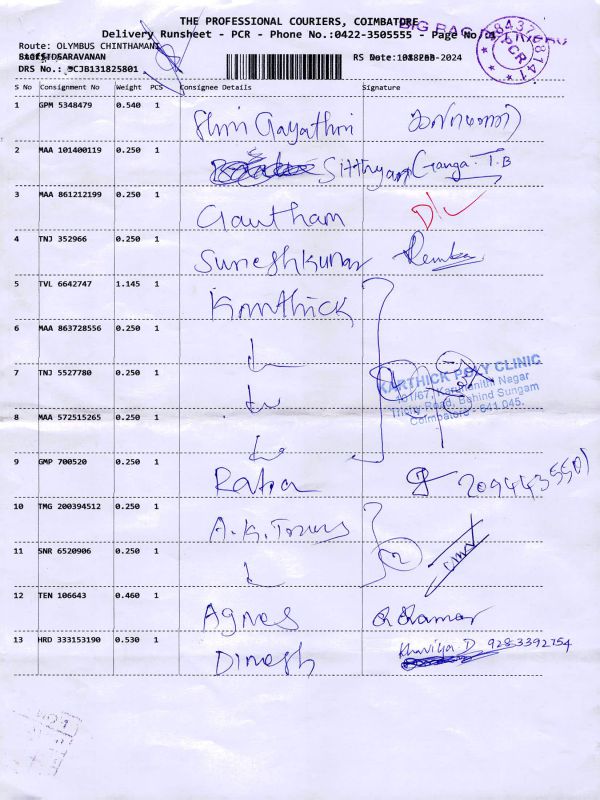 THE PROFESSIONAL COURIERS, COIMBATORE
Delivery Runsheet - PCR - Phone No.:0422-3505555 - Page No
Route: OLYMBUS CHINTHAMANI
SARAVANAN
DRS No.: CJB131825801
RS Date: -2024
S No Consignment No Weight PCS Consignee Details Signature
1 GPM 5348479 0.540 1 Shri Gayathri
2 MAA 101400119 0.250 1 Sithyam Ganga.T.B
3 MAA 861212199 0.250 1 Gautham D/L
4 TNJ 352966 0.250 1 Sureshkumar Renuka
5 TVL 6642747 1.145 1 Karthick
6 MAA 863728556 0.250 1
7 TNJ 5527780 0.250 1
KARTHICK POLY CLINIC
101/67, Karunanithi Nagar
Trichy Road, Behind Sungam
Coimbatore - 641 045.
8 MAA 572515265 0.250 1
9 GMP 700520 0.250 1 Raha
10 TMG 200394512 0.250 1 A.K. Tours
11 SNR 6520906 0.250 1
12 TEN 106643 0.460 1 Agnes
13 HRD 333153190 0.530 1 Dinesh Khaviya D 9283392754